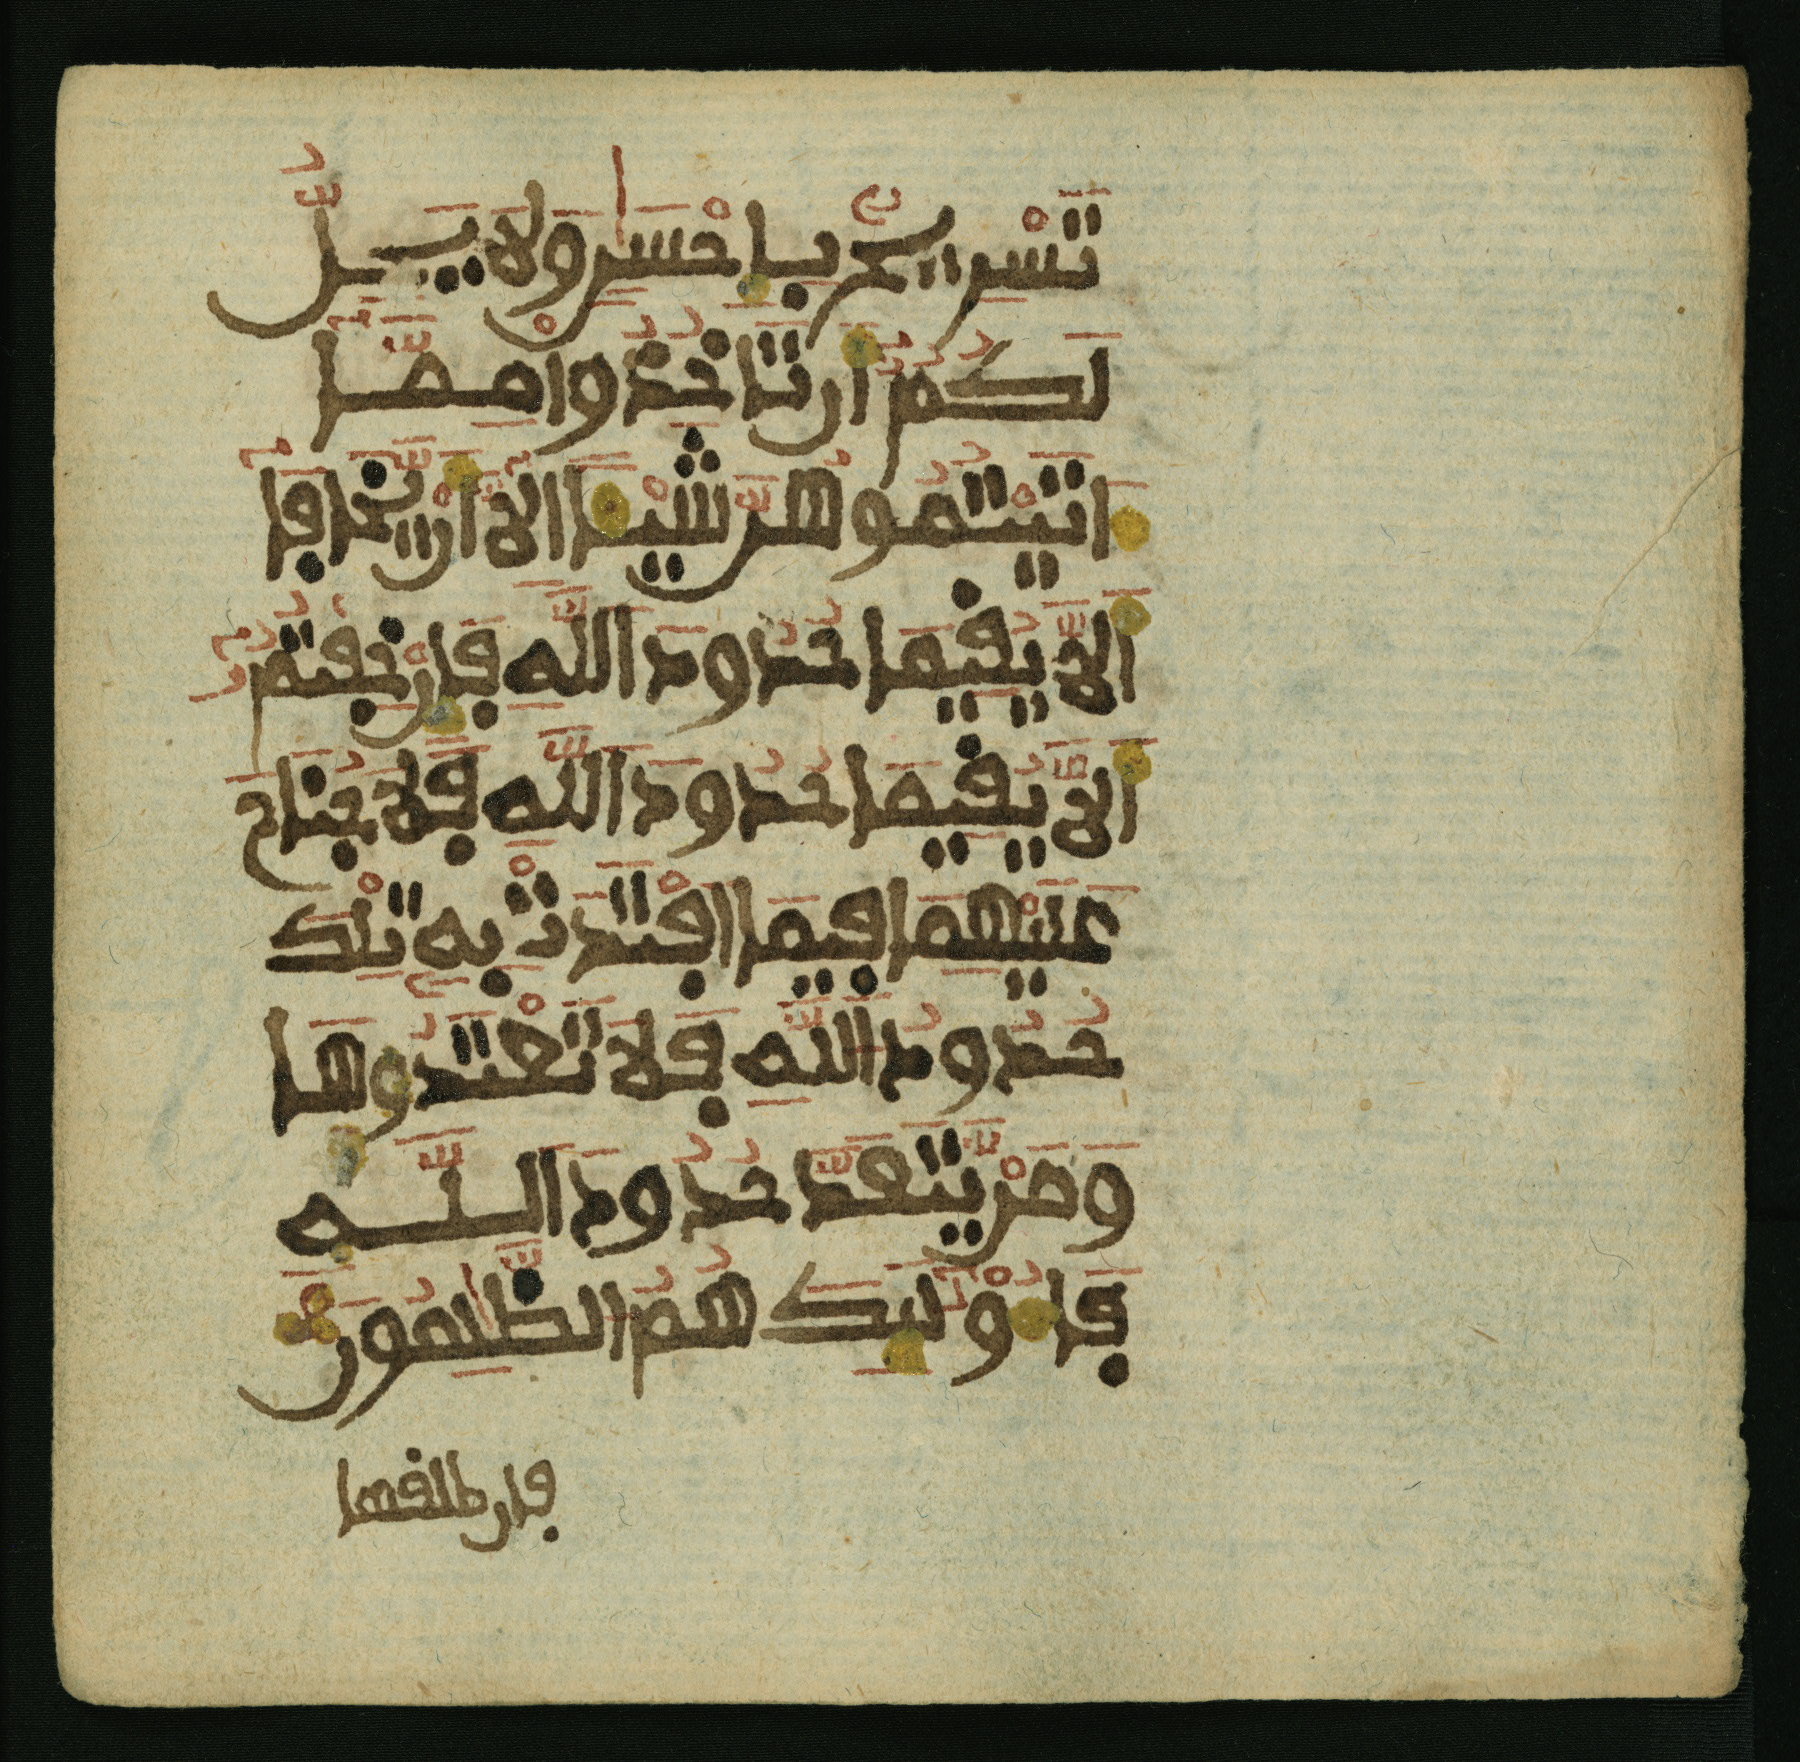 تَسْرِيحٌ بِإِحْسَٰنٍ وَلَا يَحِلُّ
لَكُمُ أَن تَاخُذُوا مِمَّا
ءَاتَيْتُمُوهُنَّ شَيْـًٔا إِلَّا أَنْ يَّخَافَا
أَلَّا يُقِيمَا حُدُودَ اللَّهِ فَإِنْ خِفْتُمُ
أَلَّا يُقِيمَا حُدُودَ اللَّهِ فَلَا جُنَاحَ
عَلَيْهِمَا فِيمَا افْتَدَتْ بِهِ تِلْكَ
حُدُودُ اللَّهِ فَلَا تَعْتَدُوهَا
وَمَنْ يَّتَعَدَّ حُدُودَ اللَّهِ
فَأُوْلَٰئِكَ هُمُ الظَّٰلِمُونَ
فإن طلقها